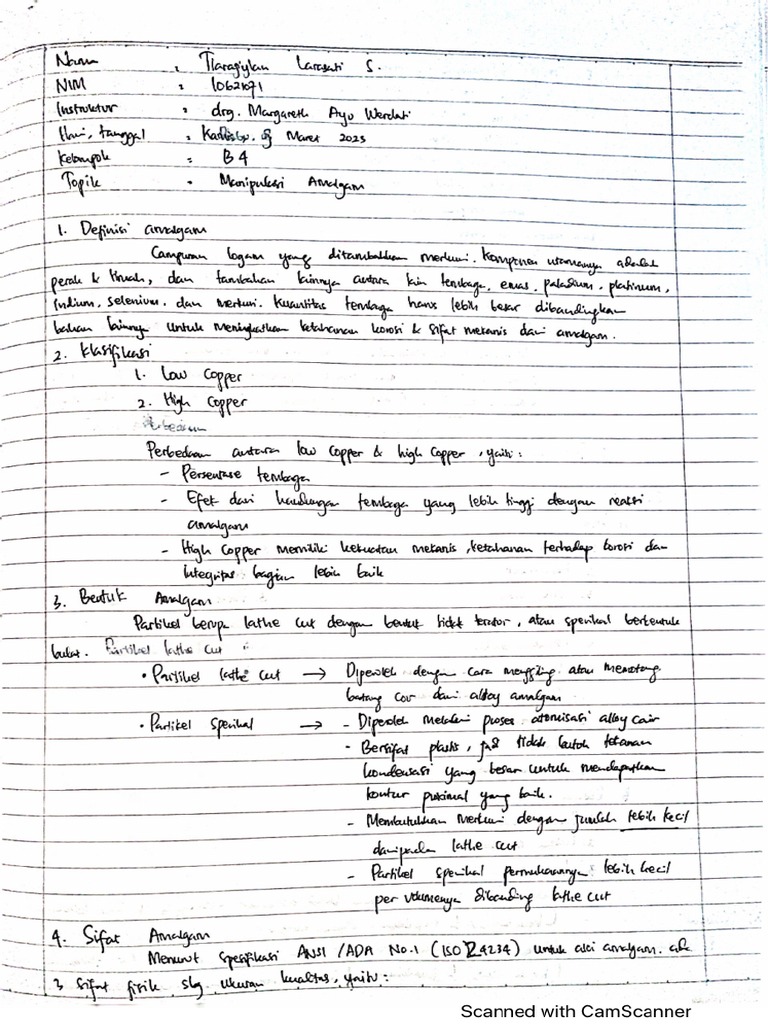 Nama : Tlaragiylan Larasati S.
NIM : 10621071
Instruktur : drg. Margareth Ayu Werdati
Hari, tanggal : Maret 2023
Kelompok : B4
Topik : Manipulasi Amalgam
1. Definisi amalgam
Campuran logam yang ditambahkan merkuri. Komponen utamanya adalah
perak & timah, dan tambahan lainnya antara lain tembaga, emas, paladium, platinum,
Indium, selenium, dan merkuri. Kuantitas tembaga harus lebih besar dibandingkan
bahan lainnya untuk meningkatkan ketahanan korosi & sifat mekanis dari amalgam.
2. Klasifikasi
1. Low Copper
2. High Copper
Perbedaan
Perbedaan antara low copper & high copper, yaitu :
- Persentase tembaga
- Efek dari kandungan tembaga yang lebih tinggi dengan reaksi
amalgam
- High Copper memiliki kekuatan mekanis, ketahanan terhadap korosi dan
Integritas bagian lebih baik
3. Bentuk Amalgam
Partikel berupa lathe cut dengan bentuk tidak teratur, atau sperikal berbentuk
bulat. Partikel lathe cut :
• Partikel lathe cut → Diperoleh dengan cara menggiling atau memotong
batang cor dari alloy amalgam
• Partikel sperikal → - Diperoleh melalui proses atomisasi alloy cair
- Bersifat plastis, jdi tidak butuh tekanan
kondensasi yang besar untuk mendapatkan
kontur proximal yang baik.
- Membutuhkan merkuri dengan jumlah lebih kecil
daripada lathe cut
- Partikel sperikal permukaannya lebih kecil
per volumenya dibanding lathe cut
4. Sifat Amalgam
Menurut spesifikasi ANSI /ADA No.1 (ISO 24234) untuk aloi amalgam. ada
3 sifat fisik sbg ukuran kualitas, yaitu :
Scanned with CamScanner